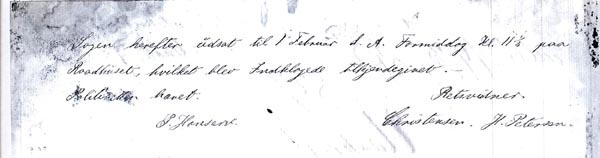 Sagen herefter udsat til 1 Februar d. A. Formiddag Kl. 11½ paa
Raadhuset, hvilket blev Indklagede tilkjendegivet. –
Politiretten hævet. Retsvidner.
S. Hansen. Christensen. H. Petersen.